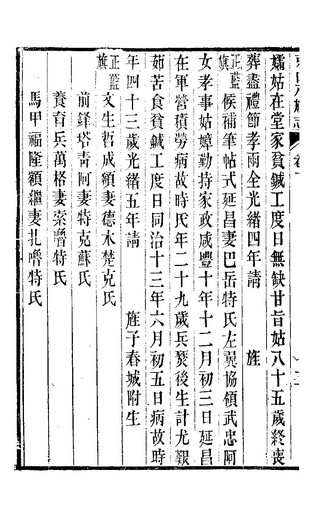 孀姑在堂家貧鍼工度日無缺甘旨姑八十五歲終喪
葬盡禮節孝兩全光緒四年請 旌
正藍旗 候補筆帖式延昌妻巴岳特氏左翼協領武忠阿
女孝事姑嫜勤持家政咸豐十年十二月初三日延昌
在軍營積勞病故時氏年二十九歲兵燹後生計尤艱
茹苦食貧鍼工度日同治十三年六月初五日病故時
年四十三歲光緒五年請 旌子春城附生
正藍旗 文生哲成額妻德木楚克氏
前鋒塔青阿妻特克蘇氏
養育兵萬格妻索嚕特氏
馬甲福隆額繼妻扎嚕特氏